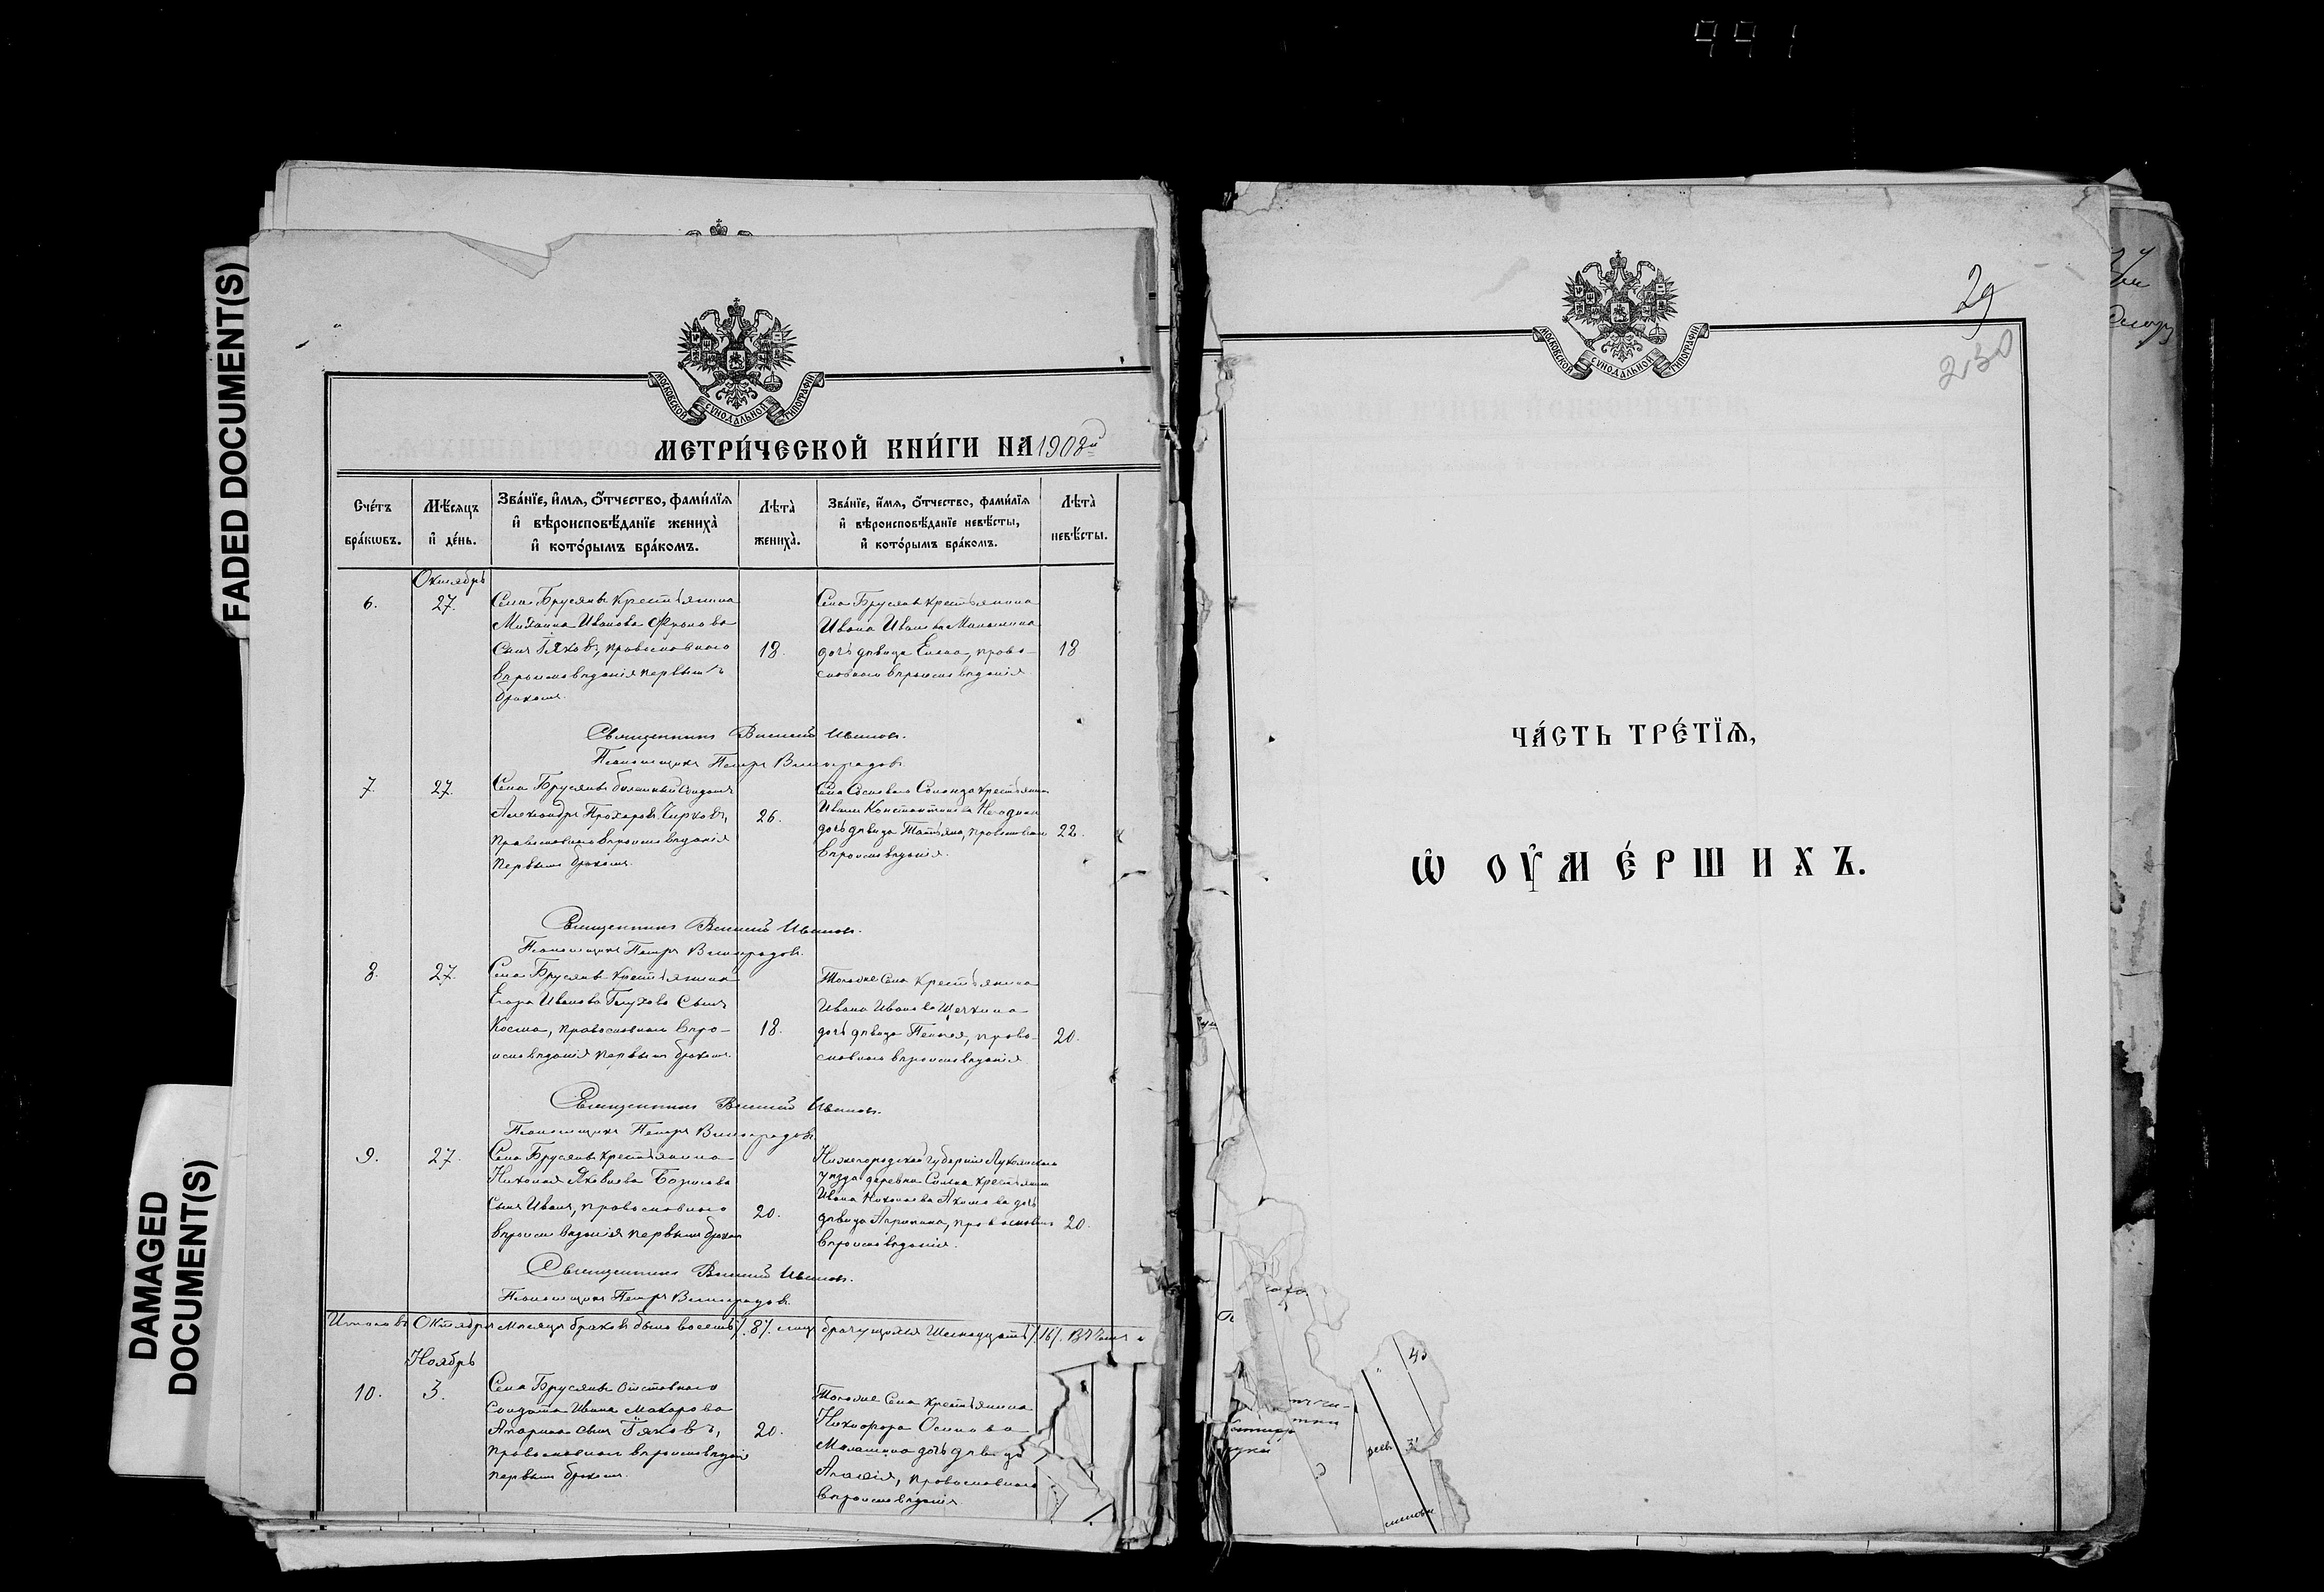 991
FADED DOCUMENT(S)
DAMAGED
DOCUMENT(S)
МОСКОВСКОЙ СѴНОДАЛЬНОЙ ТИПОГРАФІИ
МЕТРИ́ЧЕСКОЙ КНИ́ГИ НА 1908й
Сче́тъ
бра́кѡвъ.
Мѣ́сяцъ
и҆ де́нь.
Зва́нїе, и҆́мѧ, ѻ҆́тчество, фами́лїѧ
и҆ вѣроисповѣ́данїе женихà
и҆ кото́рымъ бра́комъ.
Лѣтà
женихà.
Зва́нїе, и҆́мѧ, ѻ҆́тчество, фами́лїѧ
и҆ вѣроисповѣ́данїе невѣ́сты,
и҆ кото́рымъ бра́комъ.
Лѣтà
невѣ́сты.
Октябрь
6.
27.
Села Бруслянъ Крестьянина
Михаила Иванова Фролова
сынъ Іяковъ, православнаго
вѣроисповѣданія первымъ
бракомъ.
18.
Села Бруслянъ крестьянина
Ивана Иванова
дочь дѣвица Елена, право-
славнаго вѣроисповѣданія
18
Священникъ Василій Ивановъ.
Псаломщикъ Петръ Виноградовъ.
7.
27.
Села Бруслянъ солдатъ
Александръ Прохоровъ Чирковъ,
православнаго вѣроисповѣданія
первымъ бракомъ.
26.
Села Солонца крестьянина
Ивана Константинова
дочь дѣвица Татьяна, православнаго
вѣроисповѣданія.
22.
Священникъ Василій Ивановъ.
Псаломщикъ Петръ Виноградовъ.
8.
27.
Села Бруслянъ крестьянина
Егора Иванова Глухова сынъ
Косма, православнаго вѣро-
исповѣданія первымъ бракомъ.
18.
Тогоже села крестьянина
Ивана Иванова Щечкина
дочь дѣвица Пелагея, право-
славнаго вѣроисповѣданія
20.
Священникъ Василій Ивановъ.
Псаломщикъ Петръ Виноградовъ.
9.
27.
Села Бруслянъ крестьянина
Николая Яковлева Борисова
сынъ Иванъ, православнаго
вѣроисповѣданія первымъ бракомъ
20.
Нижегородской губерніи Лукояновскаго
уѣзда деревни крестьянина
Ивана Николаева Акимова дочь
дѣвица Агрипина, православнаго
вѣроисповѣданія.
20.
Священникъ Василій Ивановъ.
Псаломщикъ Петръ Виноградовъ.
Итого въ Октябрѣ мѣсяцѣ браковъ было восемь /8/. лицъ брачущихся шестнадцать /16/.
Ноябрь
10.
3.
Села Бруслянъ отставнаго
солдата Ивана Макарова
сынъ Іяковъ,
православнаго вѣроисповѣданія
первымъ бракомъ.
20.
Тогоже села крестьянина
Никифора Осипова
Малашина дочь дѣвица
Агафія, православнаго
вѣроисповѣданія.
МОСКОВСКОЙ СѴНОДАЛЬНОЙ ТИПОГРАФІИ
29
230
ЧА́СТЬ ТРЕ́ТЇѦ,
Ѡ҆ ОУ҆МЕ́РШИХЪ.